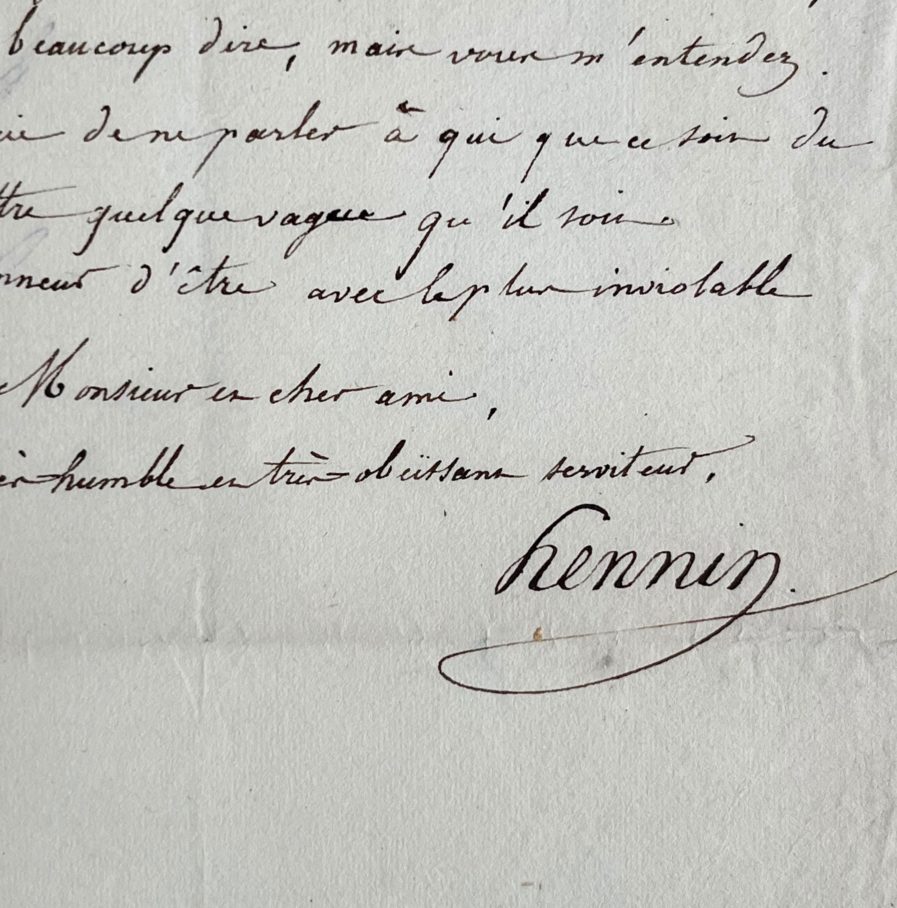 beaucoup dire, mais vous m'entendez.
de ne parler à qui que ce soit du
ttre quelque vague qu'il soit.
nneur d'être avec le plus inviolable
Monsieur et cher ami,
ès-humble et très-obéïssant serviteur.
hennin.